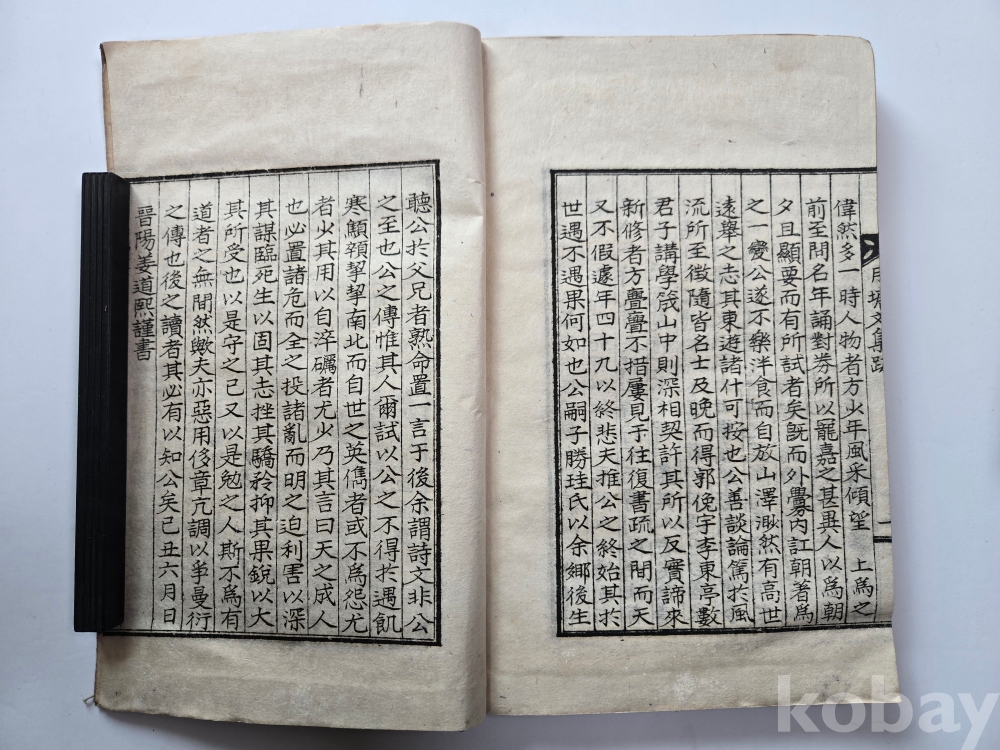 偉然多一時人物者方少年風采傾望　上爲之
前至問名年誦對券所以寵嘉之甚與人以爲朝
夕且顯要而有所試者矣旣而外釁內訌朝著爲
之一變公遂不樂泮食而自放山澤渺然有高世
遠擧之志其東遊諸什可按也公善談論篤於風
流所至徵隨皆名士及晩而得郭俛宇李東亭數
君子講學箴山中則深相契許其所以反實諦來
新修者方亹亹不措屢見于往復書疏之間而天
又不假遽年四十九以終悲夫推公之終始其於
世遇不遇果何如也公嗣子勝珪氏以余鄉後生
聽公於父兄者熟命置一言于後余謂詩文非公
之至也公之傳惟其人爾試以公之不得於遇飢
寒顑頷挈挈南北而自世之英儁者或不爲怨尤
者少其用以自淬礪者尤少乃其言曰天之成人
也必置諸危而全之投諸亂而明之迫利害以深
其謀臨死生以固其志挫其驕矜抑其果銳以大
其所受也以是守之已又以是勉之人斯不爲有
道者之無間然歟夫亦惡用侈章亢調以爭曼衍
之傳也後之讀者其必有以知公矣己丑六月日
晉陽姜道熙謹書
文集跋
kobay